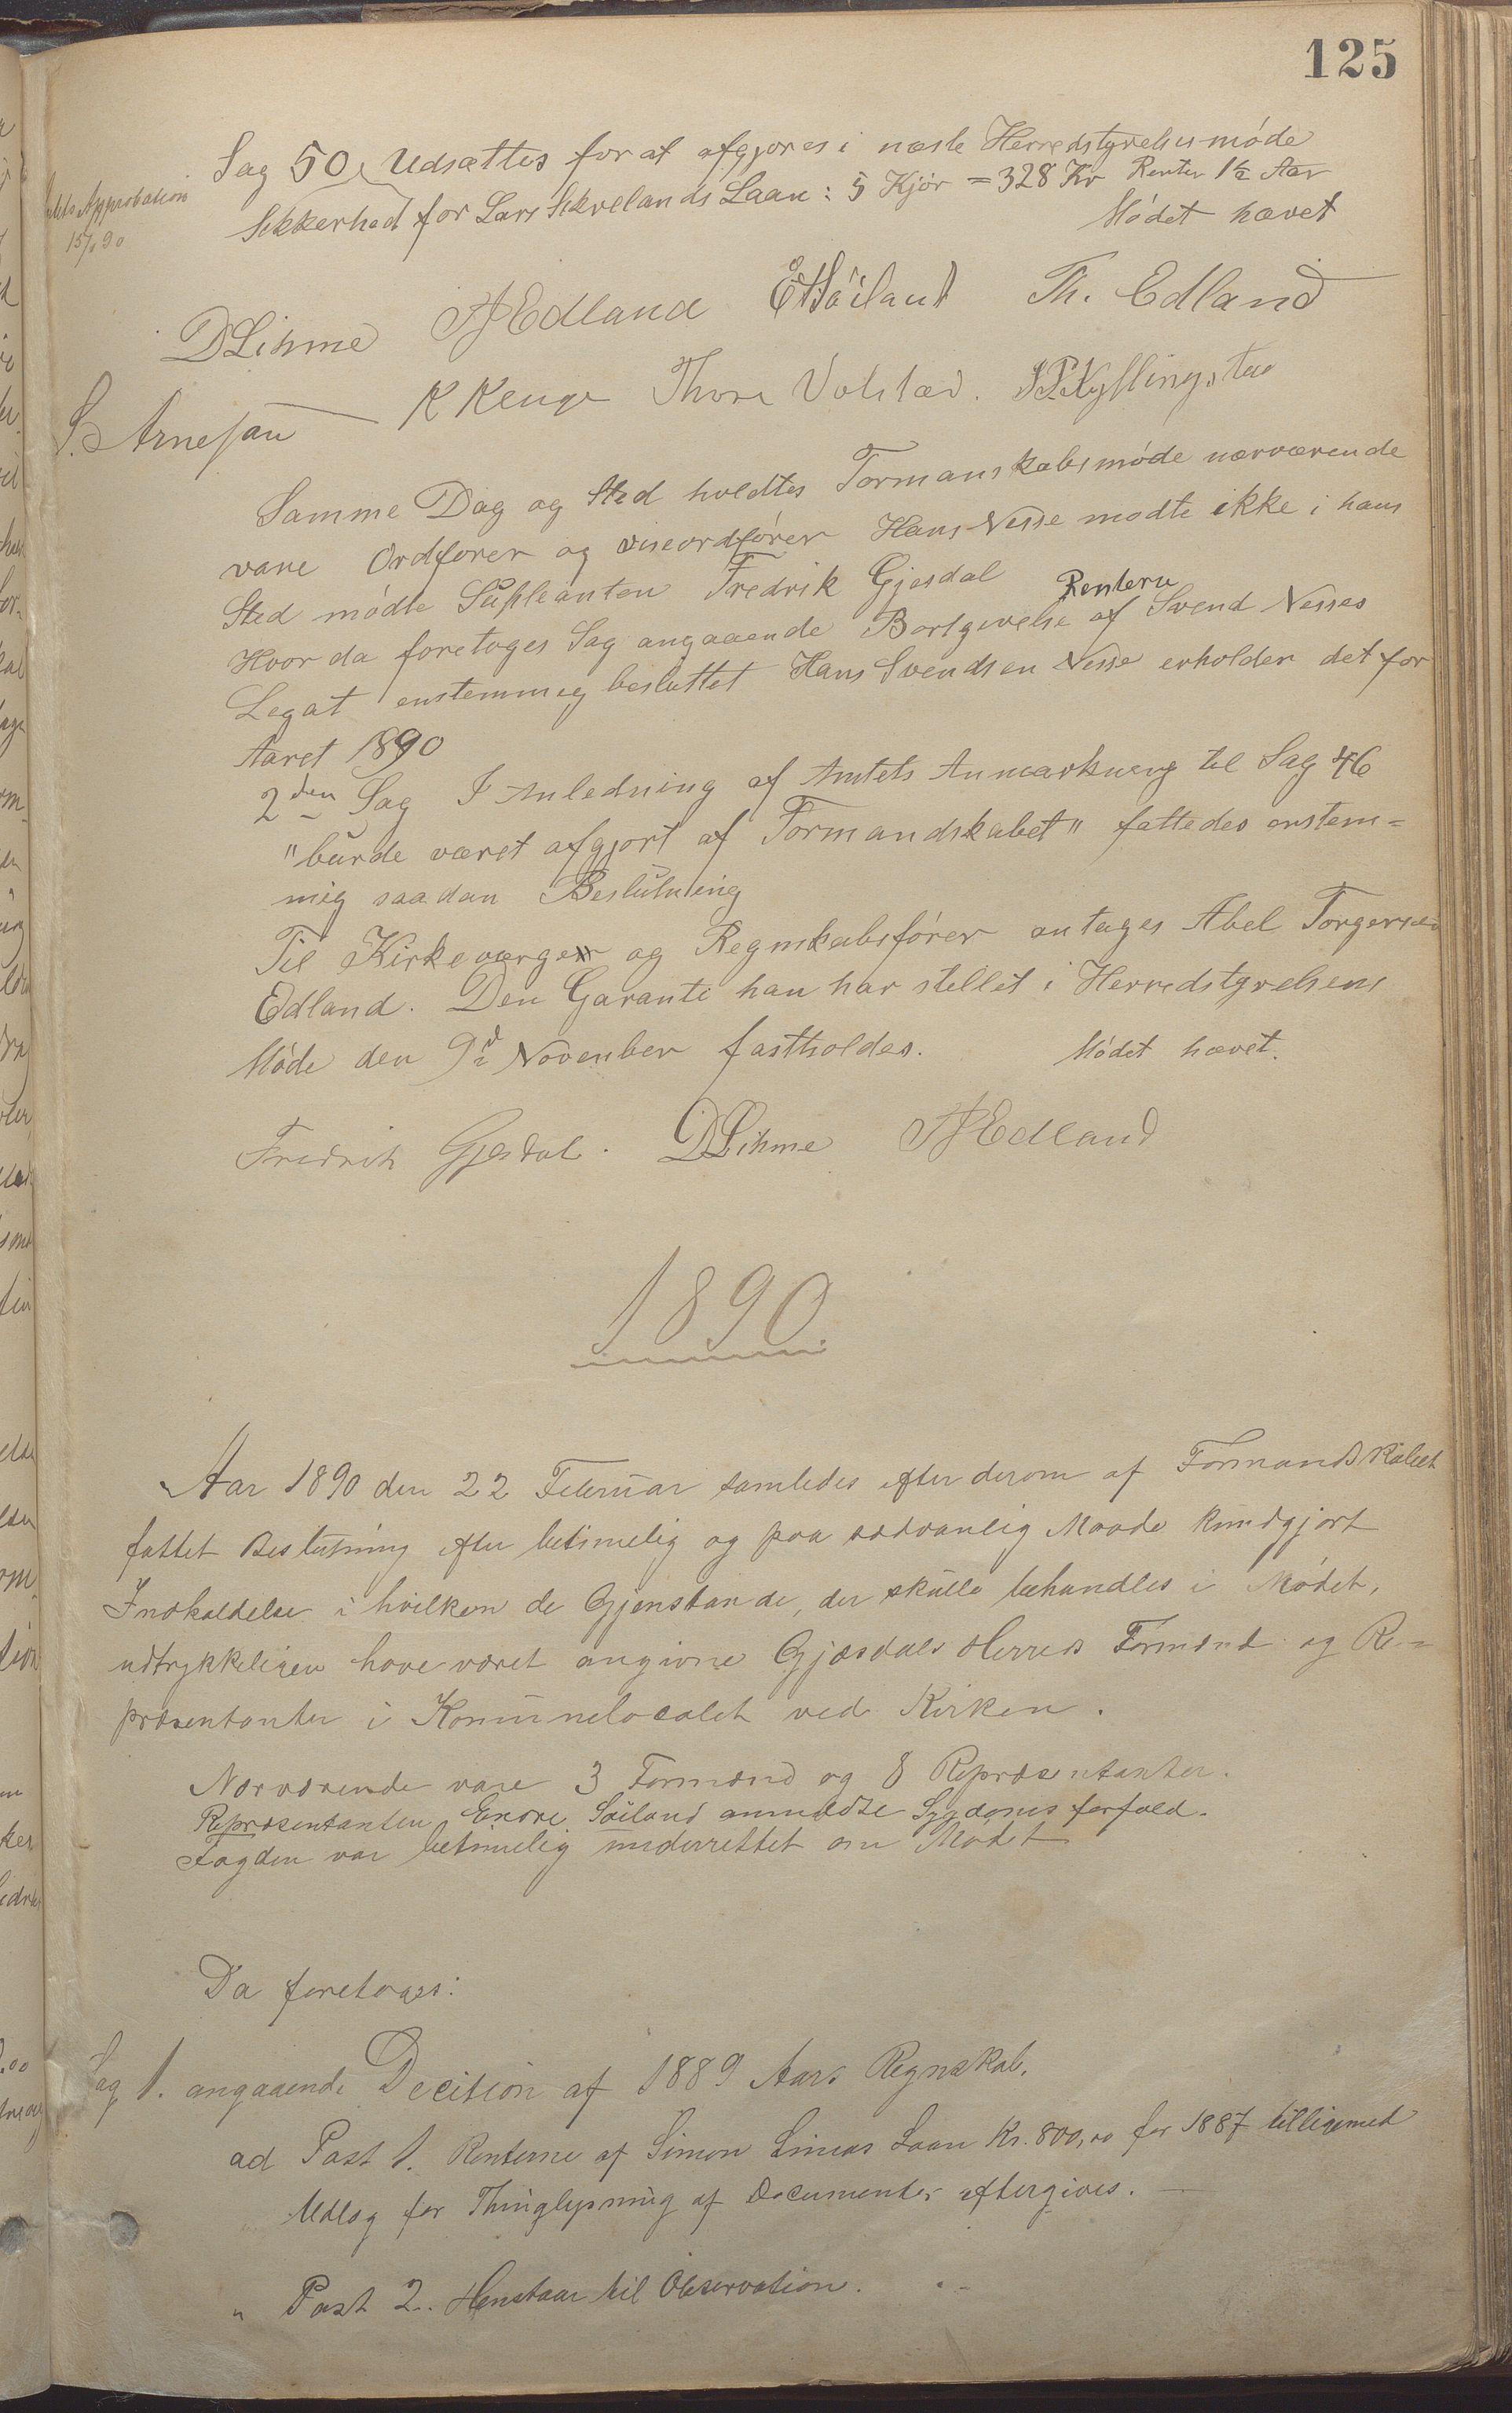 125
Sag 50 Udsættes for at afgjøres i næste Herredstyrelsesmøde
Sekkerhed for Lars Skrelands Laan: 5 Kjør = 328 Kr Renter 1½ Aar
Approbation
15/1 90
Mødet hævet
DLihme AJEdland ETSøiland Th. Edland
S. Arnesan K Kenge Thore Volstad. S.P.Kyllingstad
Samme Dag og Sted holdtes Formanskabsmøde nærværende
vare Ordfører og viseordfører Hans Nesse modte ikke i hans
Sted mødte Supleanten Fredrik Gjesdal
Renterne
Hvor da foretoges Sag angaaende Bortgivelse af Svend Nesses
Legat enstemmig besluttet Hans Svendsen Nesse erholder det for
Aaret 1890
2den Sag I Anledning af Amtets Anmærkning til Sag 46
"burde været afgjort af Formandskabet" fattedes enstem=
mig saadan Beslutning
Til Kirkeværge og Regnskabsfører antages Abel Torgersen
Edland. Den Garanti han har stillet i Herredstyrelsens
Møde den 9de November fastholdes. Mødet hævet.
Fredrik Gjesdal. DLihme AJEdland
1890
Aar 1890 den 22 Februar samledes efter derom af Formandskabet
fattet Beslutning efter betimelig og paa sædvanlig Maade kundgjort
Indkaldelse i hvilken de Gjenstande, der skulle behandles i Mødet,
udtrykkeligen have været angivne Gjæsdals Herreds Formænd og Re=
præsentanter i Komunelocalet ved Kirken.
Nærværende vare 3 Formænd og 8 Repræsentanter.
Repræsentanten Endre Søiland anmeldte Sygdoms forfald.
Fogden var betimelig underrettet om Mødet
Da foretoges:
Sag 1. angaaende Decition af 1889 Aars Regnskab.
ad Post 1. Renterne af Simon Limas Laan Kr. 800,00 for 1887 tilligemed
Udlæg for Thinglysning af Documenter eftergives.
" Post 2. Henstaar til Observation.